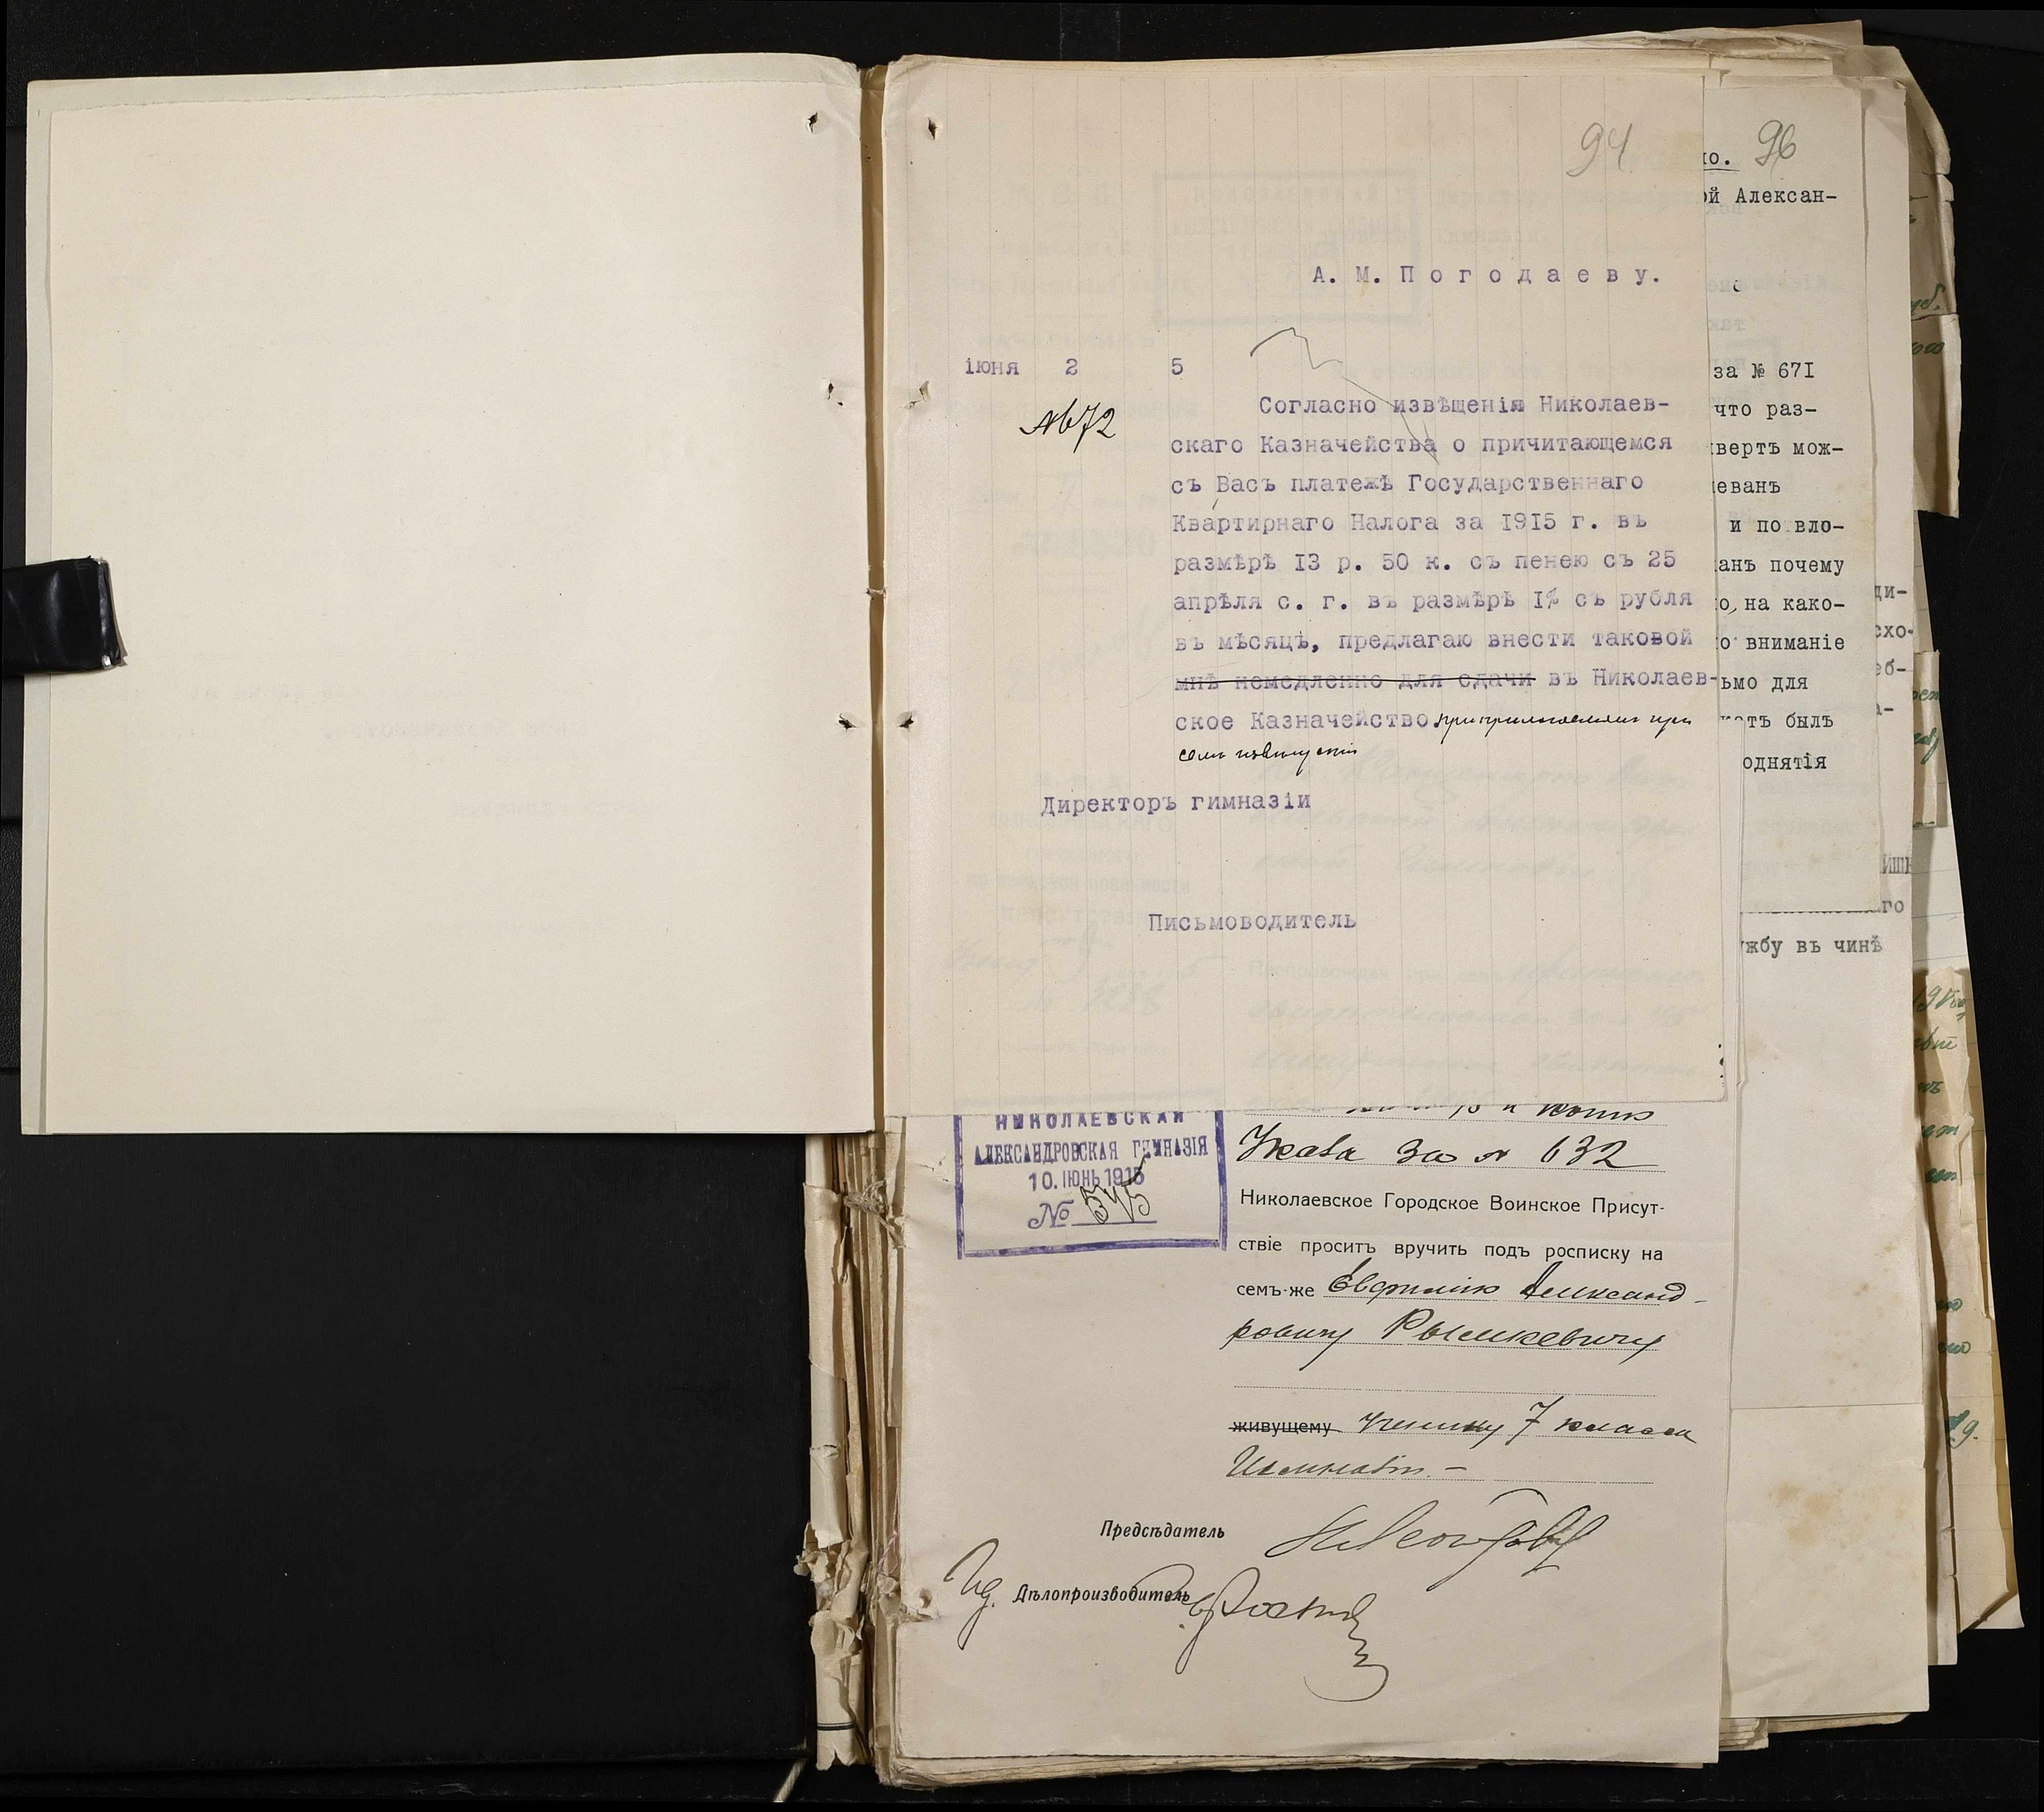 94
А. М. Погодаеву.
іюня 2 5
№ 672
Согласно извѣщенія Николаев-
скаго Казначейства о причитающемся
съ Васъ платежѣ Государственнаго
Квартирнаго Налога за 1915 г. въ
размѣрѣ 13 р. 50 к. съ пенею съ 25
апрѣля с. г. въ размѣрѣ 1% съ рубля
въ мѣсяцъ, предлагаю внести таковой
мнѣ немедленно для сдачи въ Николаев-
ское Казначейство при прилагаемомъ при
семъ извѣщеніи
Директоръ гимназіи
Письмоводитель
НИКОЛАЕВСКАЯ
АЛЕКСАНДРОВСКАЯ ГИМНАЗІЯ
10. ІЮНЬ 1915
№ 545
Указа за № 632
Николаевское Городское Воинское Присут-
ствіе проситъ вручить подъ росписку на
семъ-же Евфимію Александ-
ровичу Рымкевичу
живущему ученику 7 класса
Гимназіи. —
Предсѣдатель
И д. Дѣлопроизводитель
96
й Алексан-
за № 671
что раз-
вертъ мож-
еванъ
и по вло-
анъ почему
о, на како-
о вниманіе
ьмо для
отъ былъ
однятія
жбу въ чинѣ